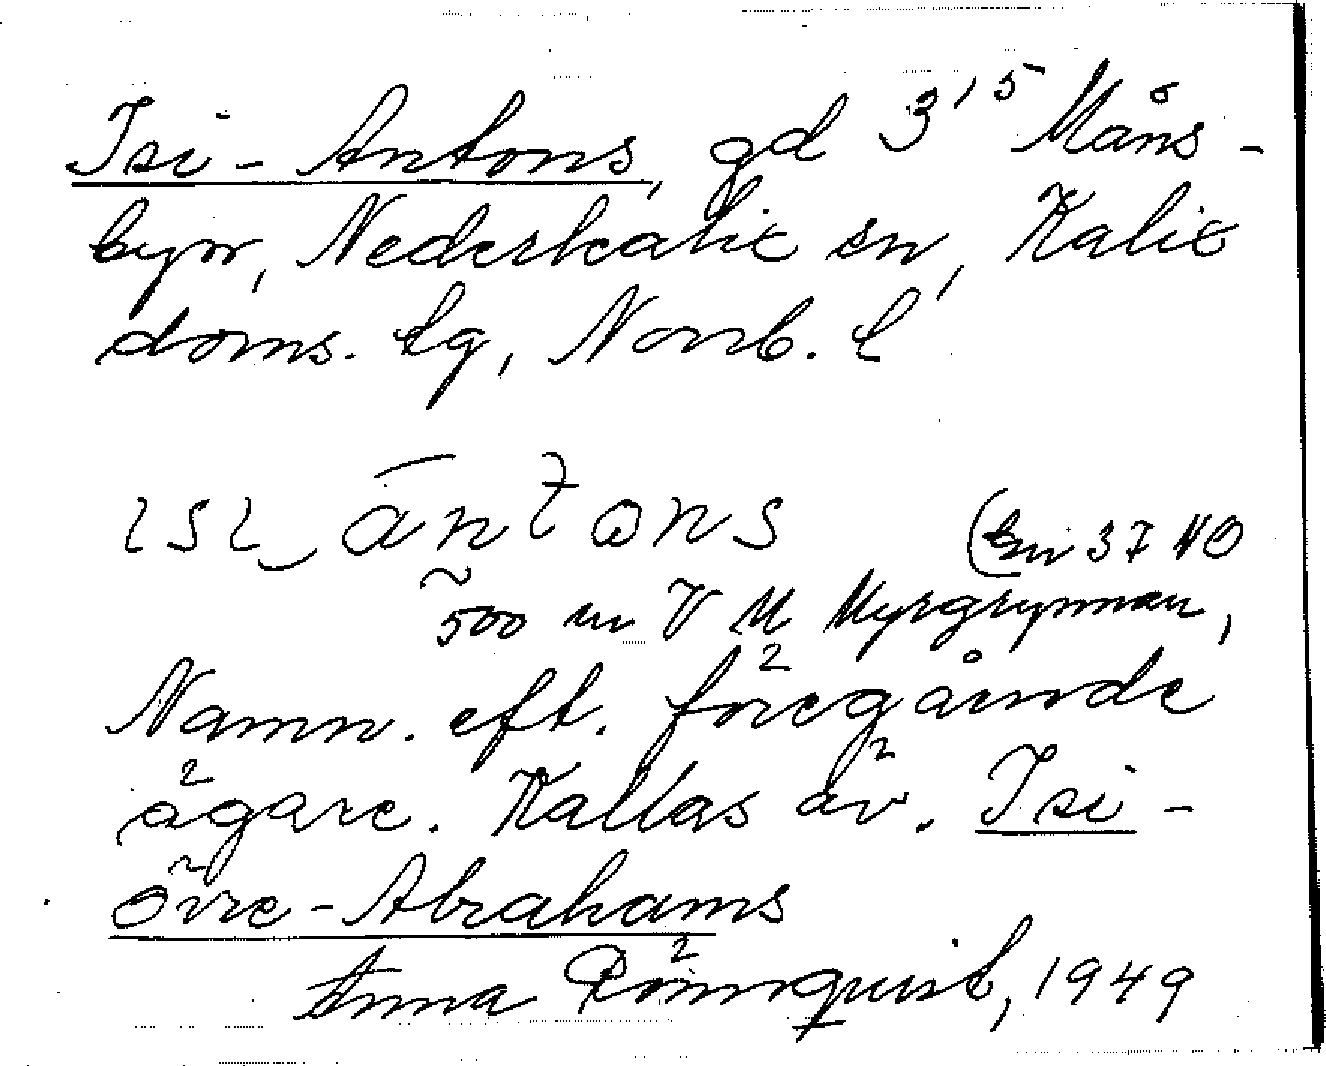 Isi-Antons, gd 3¹⁵ Måns-
byn, Nederkalix sn, Kalix
doms. lg, Norrb. l
ısı‿āntons
500 m V M Myrgrynnan,
Namn. eft. föregående
ägare. Kallas äv. Isi-
övre-Abrahams
Anna Rönnquist, 1949